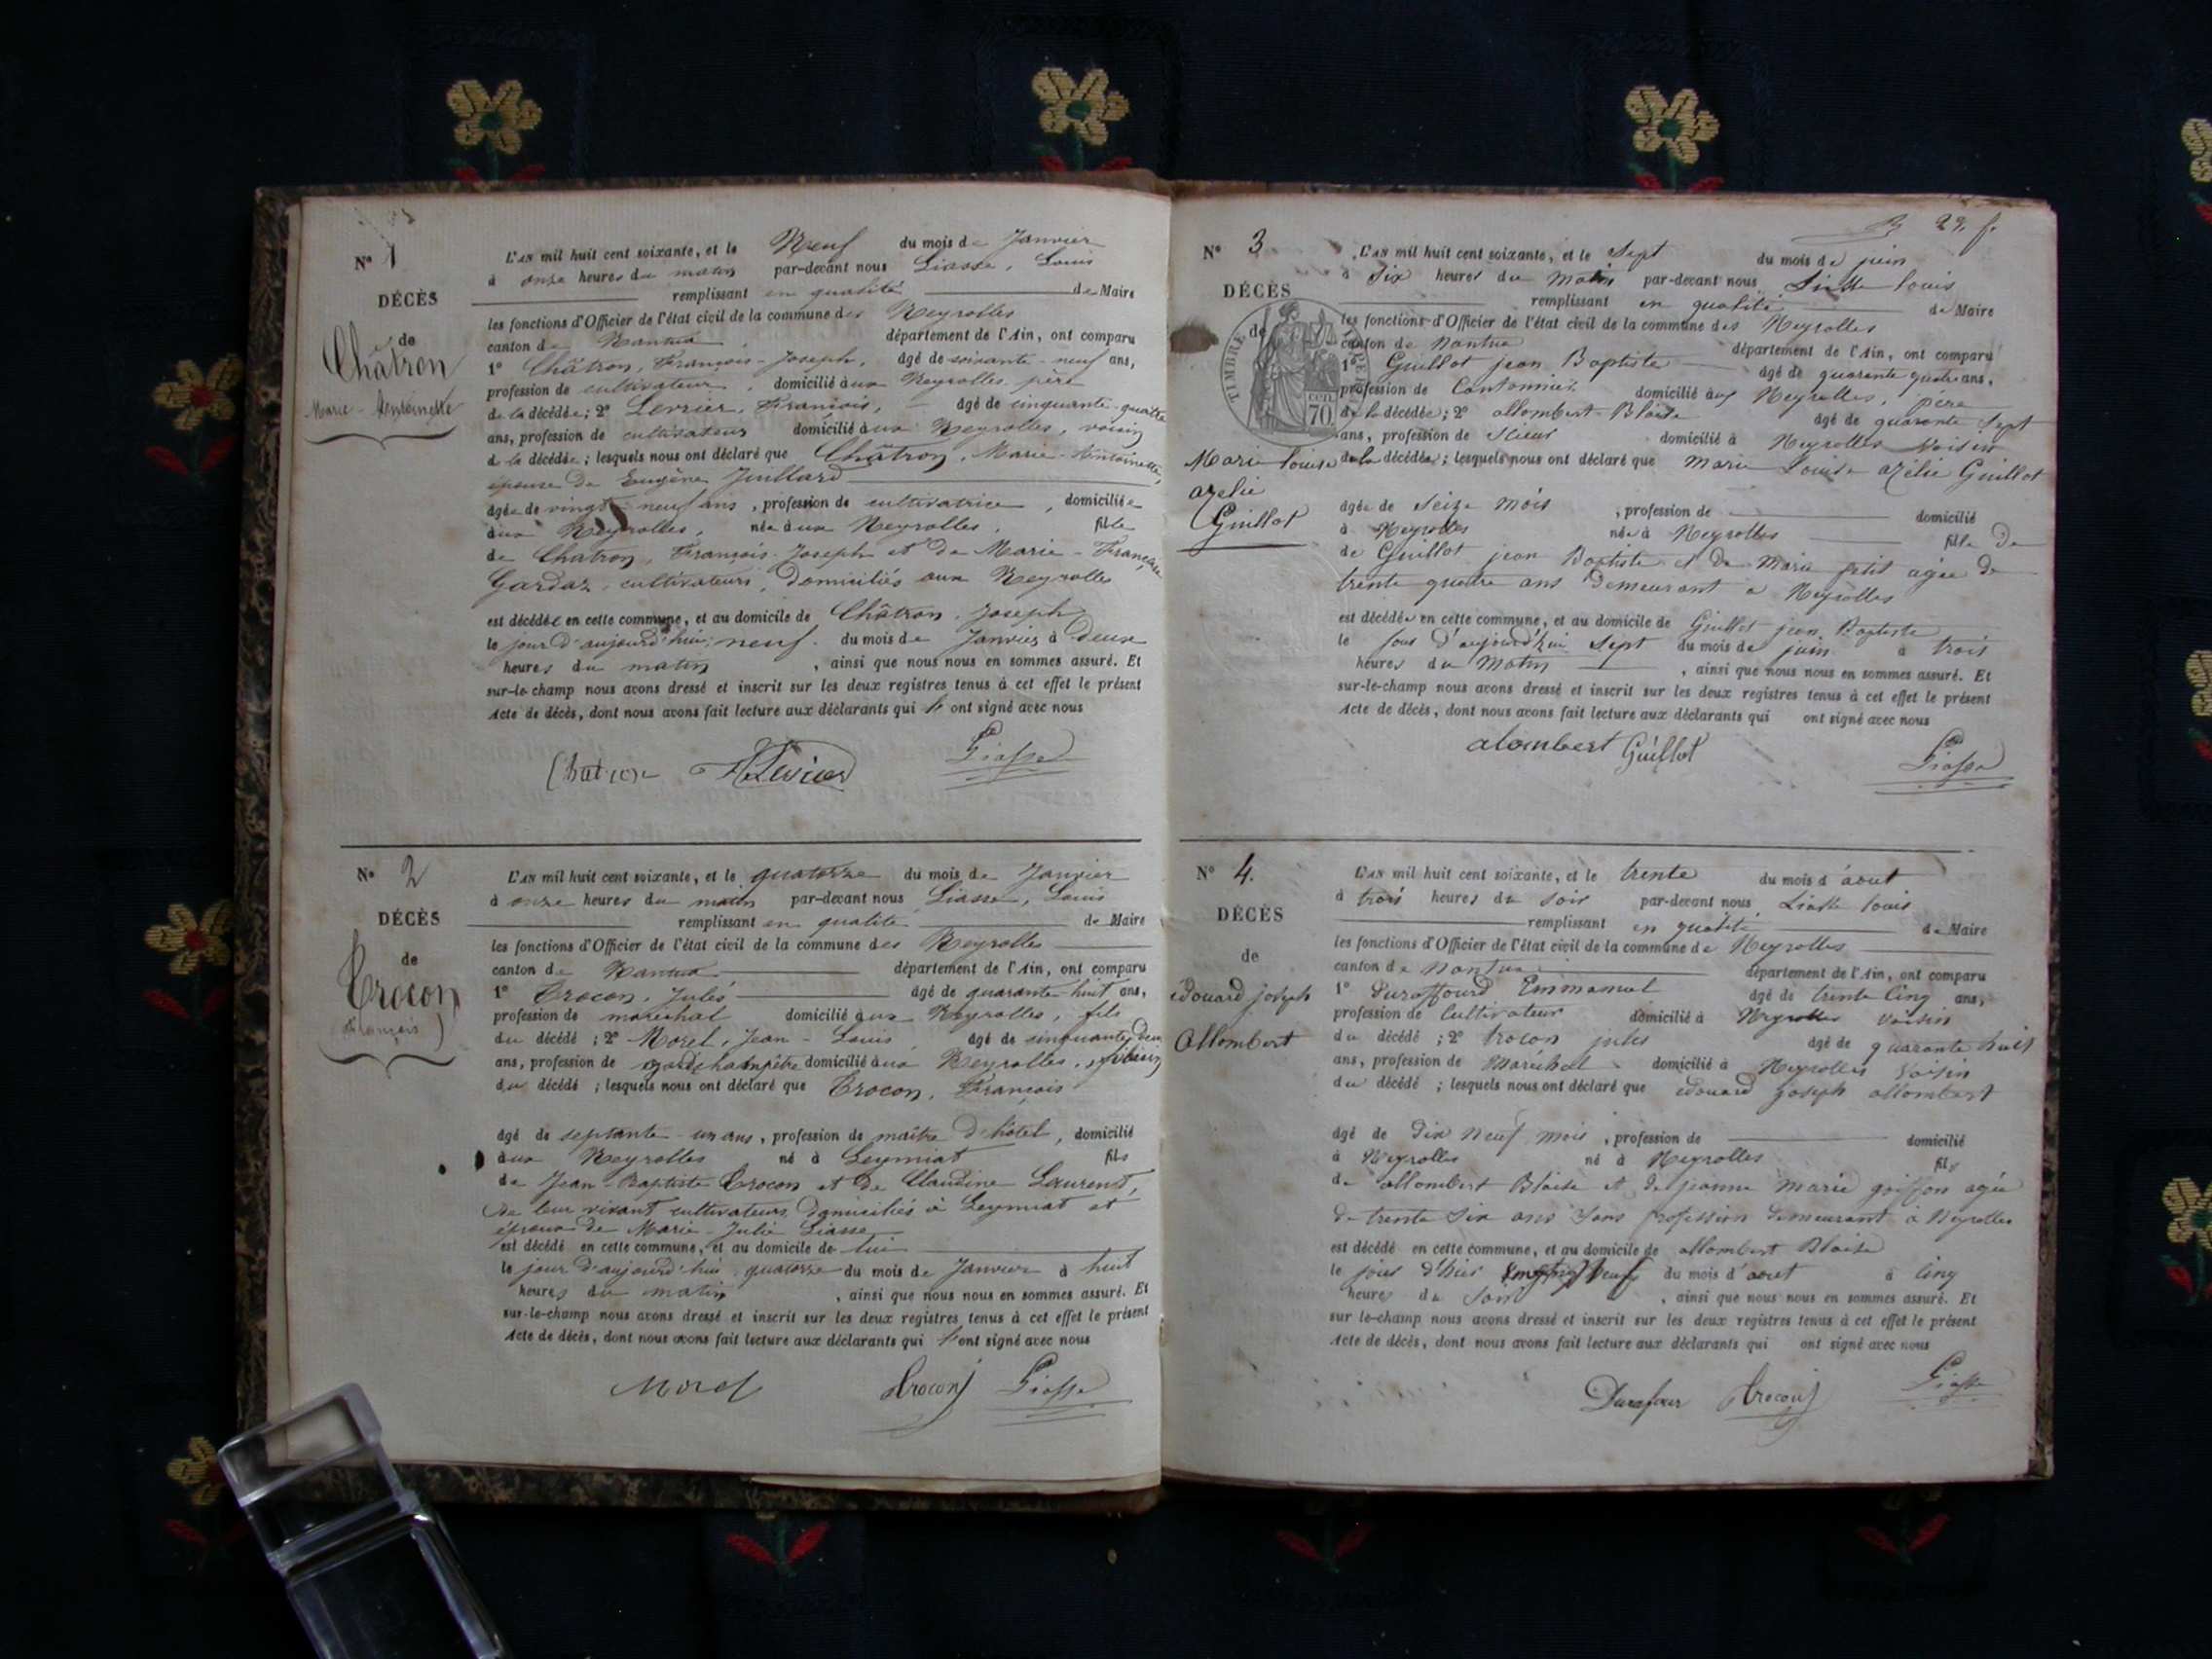 N° 1
L'AN mil huit cent soixante, et le Neuf du mois de Janvier
à onze heures du matin par-devant nous Liasse, Louis
remplissant en qualité de Maire
DÉCÈS
les fonctions d'Officier de l'état civil de la commune des Neyrolles
de
canton de Nantua département de l'Ain, ont comparu
Châtron
1° Châtron, François-Joseph, âgé de soixante-neuf ans,
profession de cultivateur, domicilié aux Neyrolles, père
Marie-Antoinette
de la décédée; 2° Levrier, François, âgé de cinquante-quatre
ans, profession de cultivateur domicilié aux Neyrolles, voisin
de la décédée; lesquels nous ont déclaré que Châtron, Marie-Antoinette,
épouse de Eugène Juillard
âgée de vingt-neuf ans, profession de cultivatrice, domiciliée
aux Neyrolles, née aux Neyrolles, fille
de Chatron, François-Joseph et de Marie-Françoise
Gardaz, cultivateurs, domiciliés aux Neyrolles
est décédée en cette commune, et au domicile de Châtron, Joseph
le jour d'aujourd'hui, neuf du mois de Janvier à deux
heures du matin, ainsi que nous nous en sommes assuré. Et
sur-le-champ nous avons dressé et inscrit sur les deux registres tenus à cet effet le présent
Acte de décès, dont nous avons fait lecture aux déclarants qui ont signé avec nous
Chatron Levrier Liasse
N° 2
L'AN mil huit cent soixante, et le quatorze du mois de Janvier
à onze heures du matin par-devant nous Liasse, Louis
DÉCÈS
remplissant en qualité de Maire
les fonctions d'Officier de l'état civil de la commune des Neyrolles
de
canton de Nantua département de l'Ain, ont comparu
Trocon
1° Trocon, Jules âgé de quarante-huit ans,
François
profession de maréchal domicilié aux Neyrolles, fils
du décédé; 2° Morel, Jean-Louis âgé de cinquante-deux
ans, profession de garde champêtre domicilié aux Neyrolles, voisin
du décédé; lesquels nous ont déclaré que Trocon, François
âgé de septante-un ans, profession de maître d'hôtel, domicilié
aux Neyrolles né à Leymiat fils
de Jean-Baptiste Trocon et de Claudine Laurent,
de leur vivant cultivateurs, domiciliés à Leymiat et
époux de Marie-Julie Liasse
est décédé en cette commune, et au domicile de lui
le jour d'aujourd'hui, quatorze du mois de Janvier à huit
heures du matin, ainsi que nous nous en sommes assuré. Et
sur-le-champ nous avons dressé et inscrit sur les deux registres tenus à cet effet le présent
Acte de décès, dont nous avons fait lecture aux déclarants qui ont signé avec nous
Morel Trocon J Liasse
29. f.
N° 3
L'AN mil huit cent soixante, et le Sept du mois de juin
à Six heures du Matin par-devant nous Liasse louis
DÉCÈS
remplissant en qualité de Maire
les fonctions d'Officier de l'état civil de la commune des Neyrolles
de
canton de Nantua département de l'Ain, ont comparu
TIMBRE
70
1° Guillot jean Baptiste âgé de quarante quatre ans,
profession de Cantonnier domicilié aux Neyrolles, père
de la décédée; 2° allombert Blaise âgé de quarante Sept
ans, profession de Scieur domicilié à Neyrolles Voisin
Marie louise
azelie
Guillot
de la décédée; lesquels nous ont déclaré que Marie Louise azélie Guillot
âgée de Seize Mois, profession de domicilié
à Neyrolles née à Neyrolles fille De
de Guillot jean Baptiste et De Marie petit agée de
trente quatre ans Demeurant a Neyrolles
est décédée en cette commune, et au domicile de Guillot jean Baptiste
le Jour d'aujourd'hui Sept du mois de juin à trois
heures du Matin, ainsi que nous nous en sommes assuré. Et
sur-le-champ nous avons dressé et inscrit sur les deux registres tenus à cet effet le présent
Acte de décès, dont nous avons fait lecture aux déclarants qui ont signé avec nous
alombert Guillot Liasse
N° 4.
L'AN mil huit cent soixante, et le trente du mois d'aout
à trois heures du Soir par-devant nous Liasse louis
DÉCÈS
remplissant en qualité de Maire
les fonctions d'Officier de l'état civil de la commune de Neyrolles
de
canton de Nantua département de l'Ain, ont comparu
edouard joseph
Allombert
1° Duraffourd Emmanuel âgé de trente Cinq ans,
profession de Cultivateur domicilié à Neyrolles Voisin
du décédé; 2° trocon jules âgé de quarante huit
ans, profession de Maréchal domicilié à Neyrolles Voisin
du décédé; lesquels nous ont déclaré que edouard joseph allombert
âgé de Dix Neuf mois, profession de domicilié
à Neyrolles né à Neyrolles fils
de allombert Blaise et de jeanne Marie goiffon agée
de trente Six ans Sans profession demeurant à Neyrolles
est décédé en cette commune, et au domicile de allombert Blaise
le jour d'hier Vingt Neuf du mois d'aout à Cinq
heures du Soir, ainsi que nous nous en sommes assuré. Et
sur-le-champ nous avons dressé et inscrit sur les deux registres tenus à cet effet le présent
Acte de décès, dont nous avons fait lecture aux déclarants qui ont signé avec nous
Durafour Trocon J Liasse